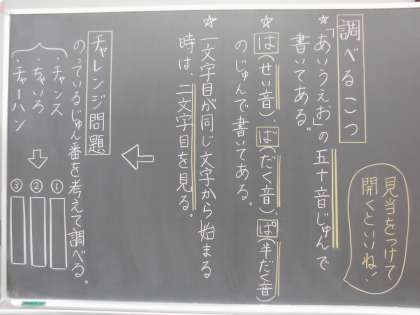 調べるこつ
☆「あいうえお」の五十音じゅんで
書いてある。
☆は(せい音)、ば(だく音)、ぱ(半だく音)
のじゅんで書いてある。
☆一文字目が同じ文字から始まる
時は、二文字目を見る。
見当をつけて
開くといいね!
チャレンジ問題
のっているじゅん番を考えて調べる。
・チャンス
・ちゃいろ
・チャーハン
①
②
③